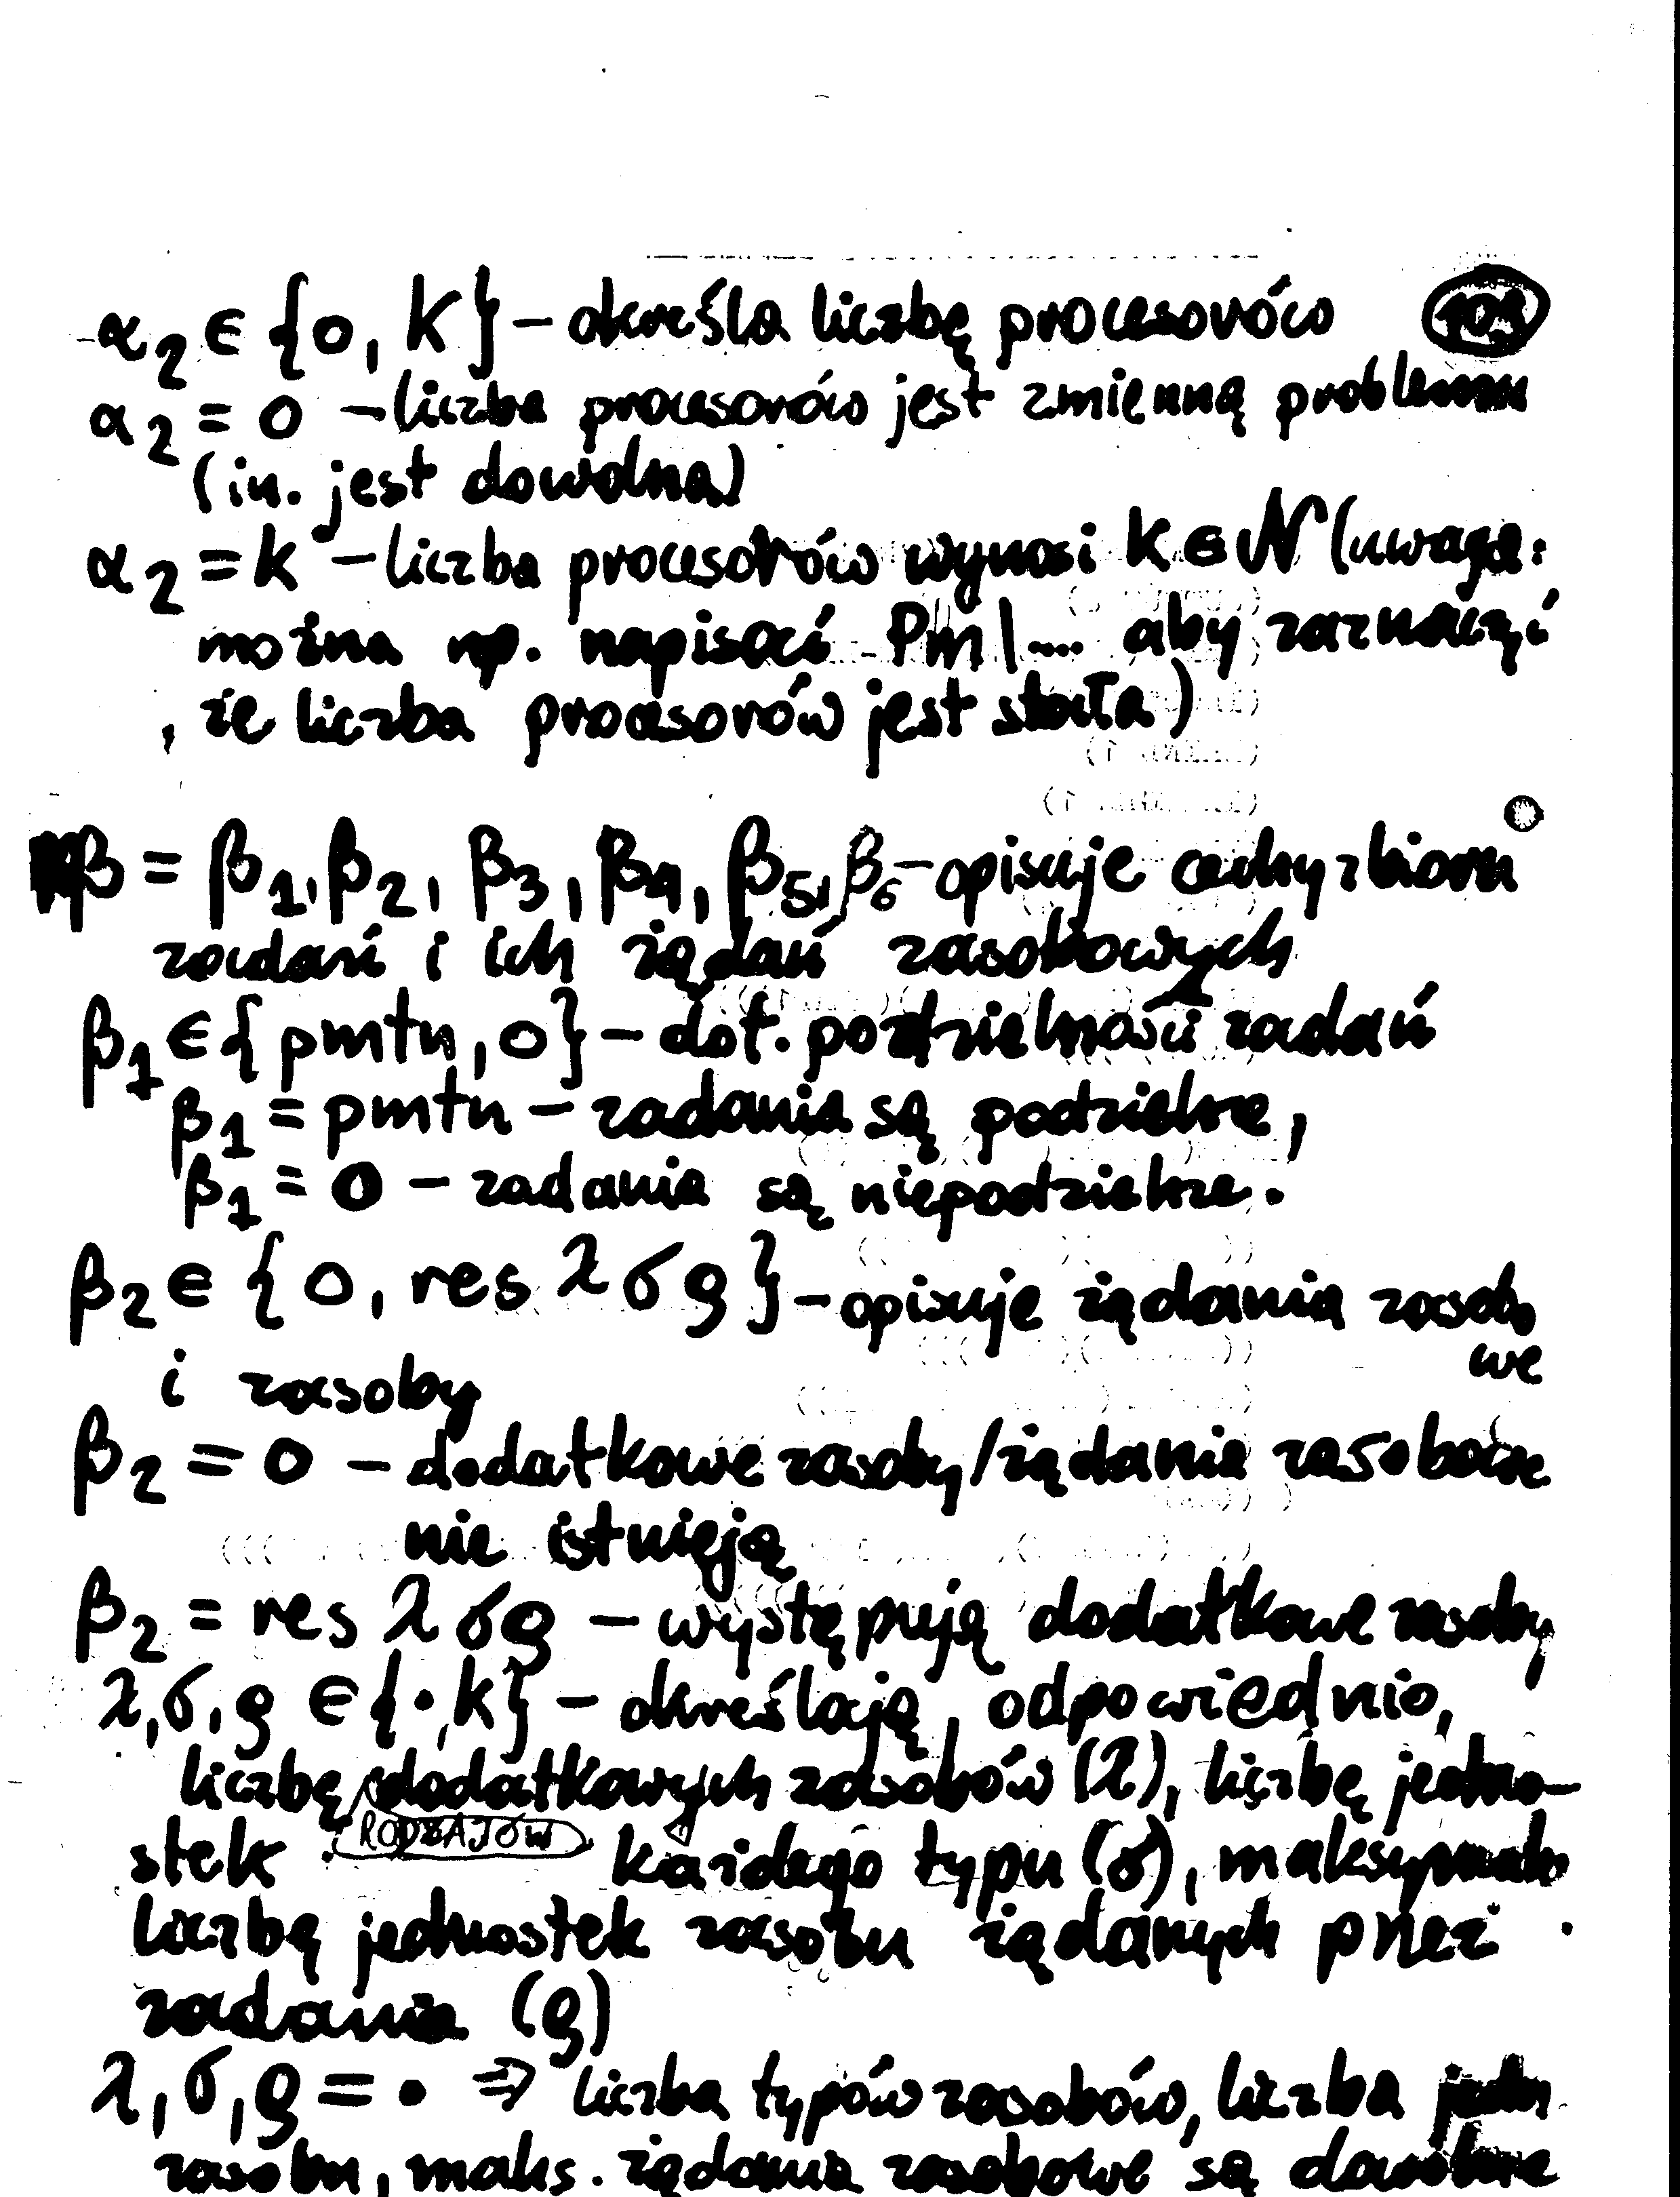 α₂ ∈ {0, k} – określa liczbę procesorów
α₂ = 0 – liczba procesorów jest zmienną problemu
(in. jest dowolna)
α₂ = k – liczba procesorów wynosi k ∈ N (uwaga:
można np. napisać Pm|.... aby zaznaczyć
, że liczba procesorów jest stała)
β = β₁, β₂, β₃, β₄, β₅, β₆ – opisuje cechy zbioru
zadań i ich żądań zasobowych
β₁ ∈ {pmtn, 0} – dot. podzielności zadań
β₁ = pmtn – zadania są podzielne,
β₁ = 0 – zadania są niepodzielne.
β₂ ∈ {0, res λσρ} – opisuje żądania zasobo
we
i zasoby
β₂ = 0 – dodatkowe zasoby/żądania zasobowe
nie istnieją
β₂ = res λσρ – występują dodatkowe zasoby
λ,σ,ρ ∈ {·,k} – określają, odpowiednio,
liczbę dodatkowych zasobów (λ), liczbę jedno–
RODZAJÓW
stek każdego typu (σ), maksymalną
liczbę jednostek zasobu żądanych przez
zadania (ρ)
λ,σ,ρ = · ⇒ liczba typów zasobów, liczba jedn.
zasobu, maks. żądania zasobowe są dowolne